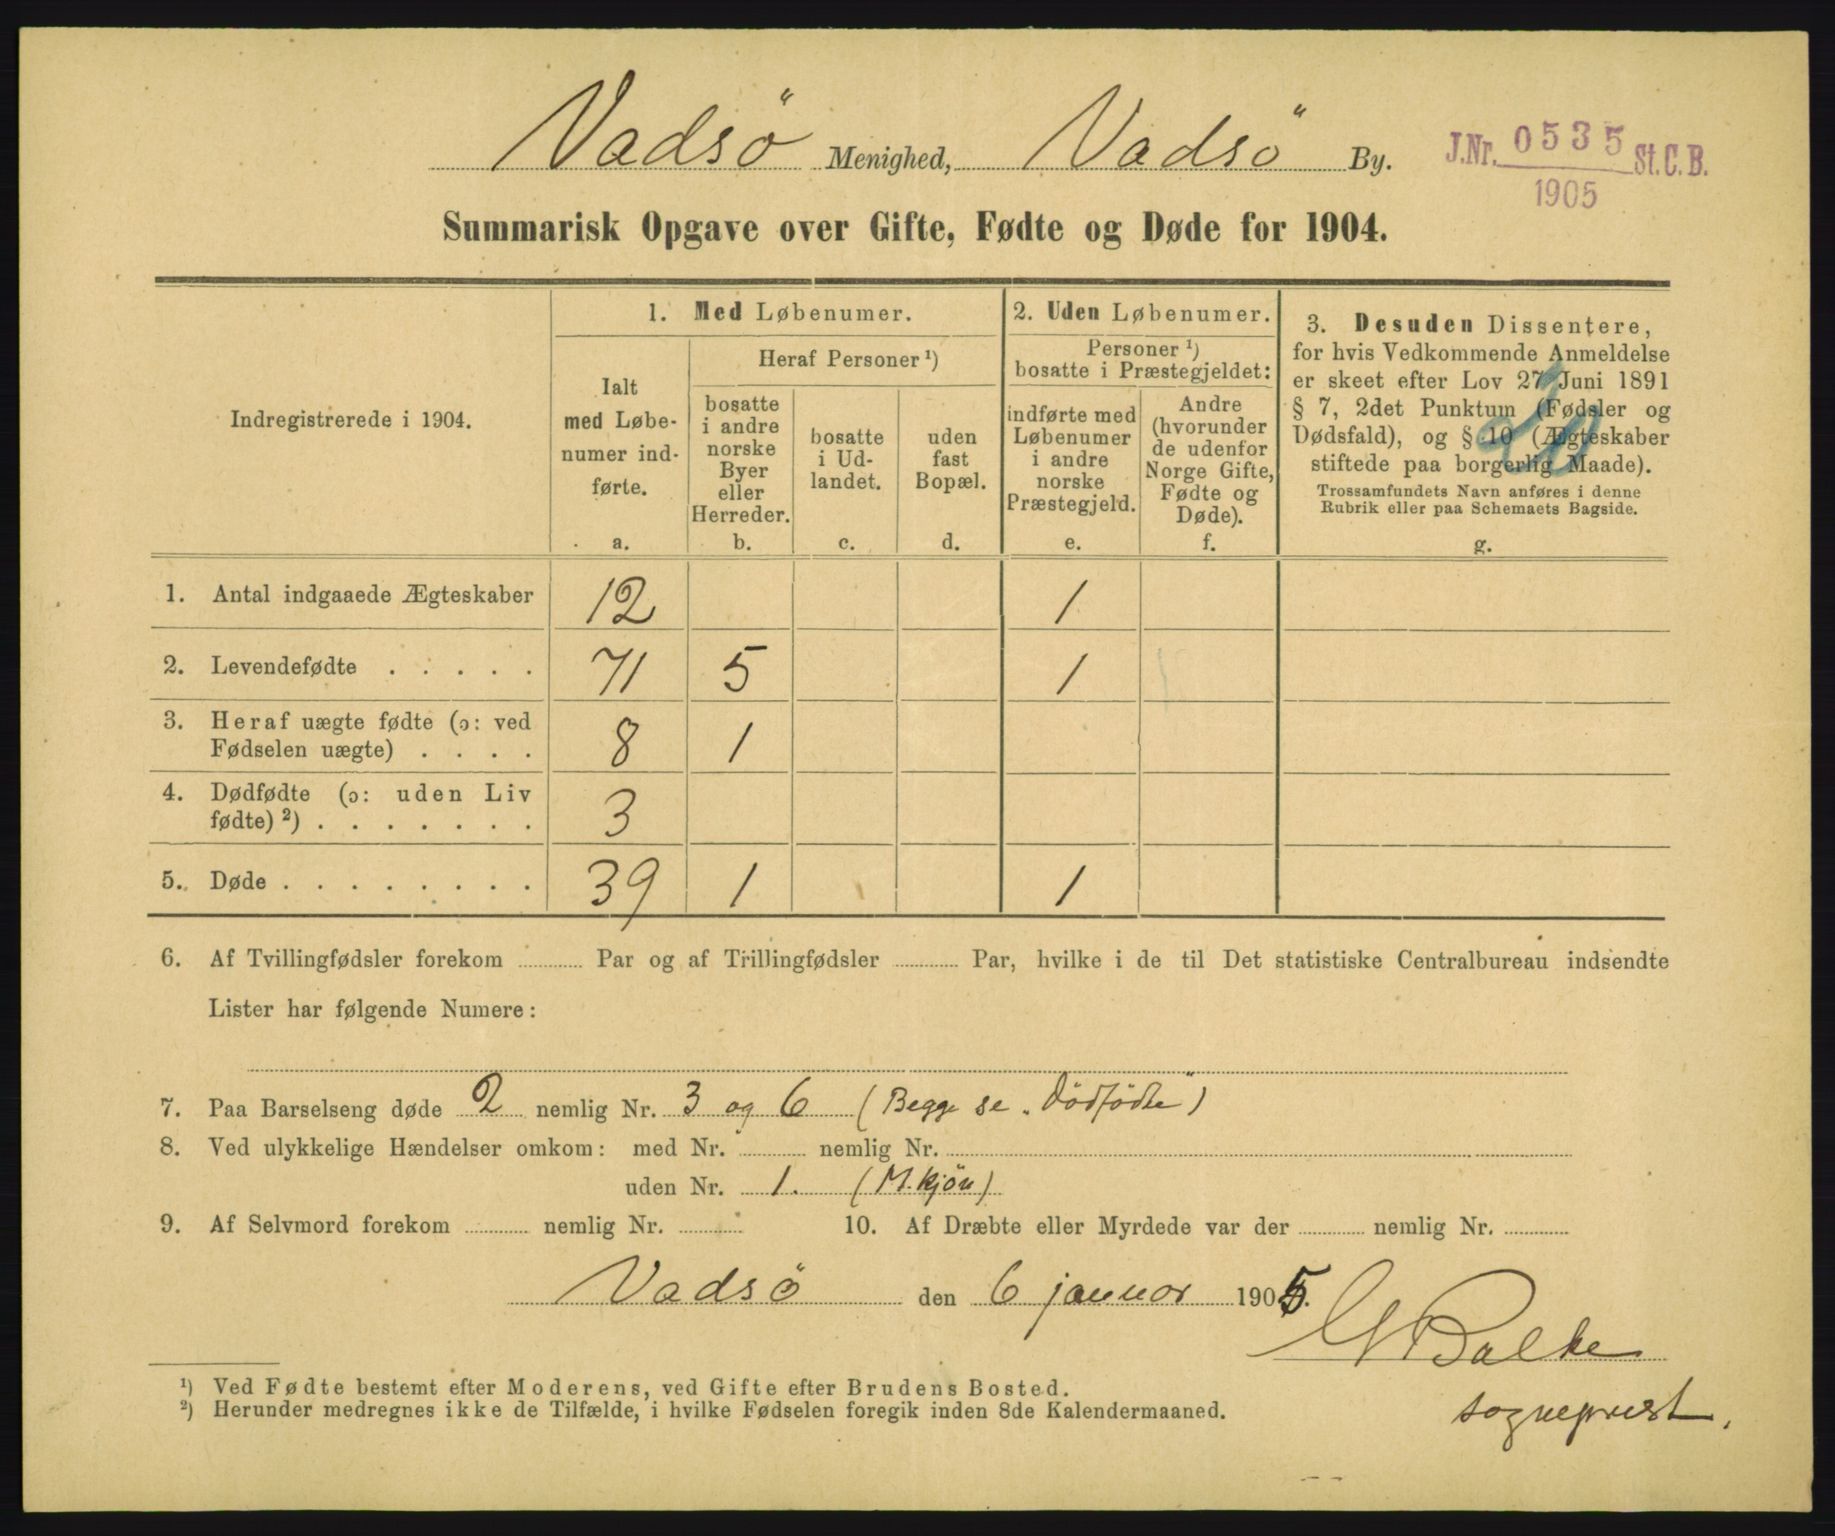 Vadsö Menighed, Vadsö By.
J.Nr. 0535 St.C.B.
1905
Summarisk Opgave over Gifte, Fødte og Døde for 1904.
Indregistrerede i 1904.
1. Med Løbenumer.
Ialt
med Løbe-
numer ind-
førte.
a.
Heraf Personer ¹)
bosatte
i andre
norske
Byer
eller
Herreder.
b.
bosatte
i Ud-
landet.
c.
uden
fast
Bopæl.
d.
2. Uden Løbenumer.
Personer ¹)
bosatte i Præstegjeldet:
indførte med
Løbenumer
i andre
norske
Præstegjeld.
e.
Andre
(hvorunder
de udenfor
Norge Gifte,
Fødte og
Døde).
f.
3. Desuden Dissentere,
for hvis Vedkommende Anmeldelse
er skeet efter Lov 27 Juni 1891
§ 7, 2det Punktum (Fødsler og
Dødsfald), og § 10 (Ægteskaber
stiftede paa borgerlig Maade).
Trossamfundets Navn anføres i denne
Rubrik eller paa Schemaets Bagside.
g.
20
1. Antal indgaaede Ægteskaber 12 1
2. Levendefødte . . . . . 71 5 1
3. Heraf uægte fødte (ɔ: ved
Fødselen uægte) . . . . 8 1
4. Dødfødte (ɔ: uden Liv
fødte) ²) . . . . . . . 3
5. Døde . . . . . . . . 39 1 1
6. Af Tvillingfødsler forekom Par og af Trillingfødsler Par, hvilke i de til Det statistiske Centralbureau indsendte
Lister har følgende Numere:
7. Paa Barselseng døde 2 nemlig Nr. 3 og 6 (Begge se „Dödfödte")
8. Ved ulykkelige Hændelser omkom: med Nr. nemlig Nr.
uden Nr. 1. (M.kjön)
9. Af Selvmord forekom nemlig Nr. 10. Af Dræbte eller Myrdede var der nemlig Nr.
Vadsö den 6 januar 1905.
G Balke
sogneprest.
¹) Ved Fødte bestemt efter Moderens, ved Gifte efter Brudens Bosted.
²) Herunder medregnes ikke de Tilfælde, i hvilke Fødselen foregik inden 8de Kalendermaaned.